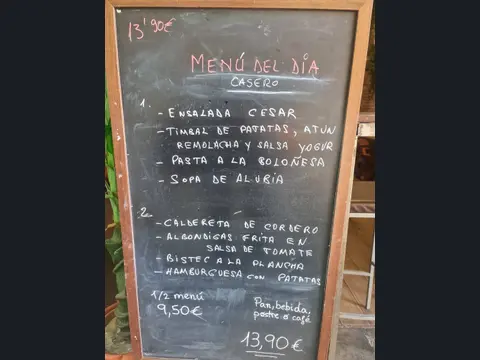 13'90€
MENÚ DEL DÍA
CASERO
1. - ENSALADA CESAR
- TIMBAL DE PATATAS, ATUN
REMOLACHA Y SALSA YOGUR
- PASTA A LA BOLOÑESA
- SOPA DE ALUBIA
2. - CALDERETA DE CORDERO
- ALBONDIGAS FRITA EN
SALSA DE TOMATE
- BISTEC A LA PLANCHA
- HAMBURGUESA CON PATATAS
1/2 menú
9,50€
Pan, bebida,
postre o café
13,90€